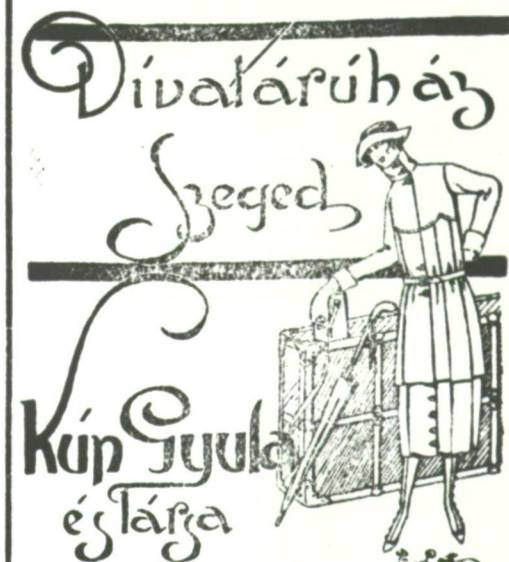 Divatárúház
Szeged
Kún Gyula
és Társa